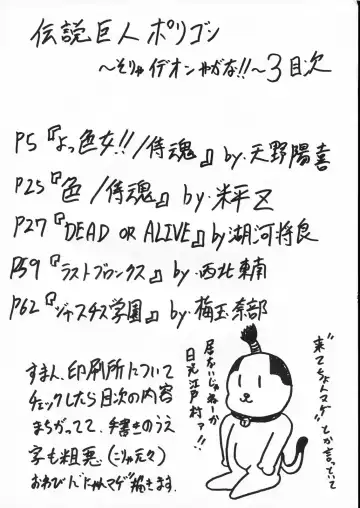 伝説巨人ポリゴン
〜そりゃイデオンやがな!!〜3目次
P5『よっ色女!!/侍魂』by.天野陽喜
P25『色/侍魂』by.米平乙
P27『DEAD OR ALIVE』by湖河将良
P59『ラストブロンクス』by.西北東南
P62『ジャスチス学園』by.梅玉奈部
すまん、印刷所について
チェックしたら目次の内容
まちがってて、手書きのうえ
字も粗悪(こりゃ元々)
おわびに『にゃんマゲ』描きます.
"来てちょんマゲ"とか言っていて
居ないじゃねーか
日光江戸村ァ!!